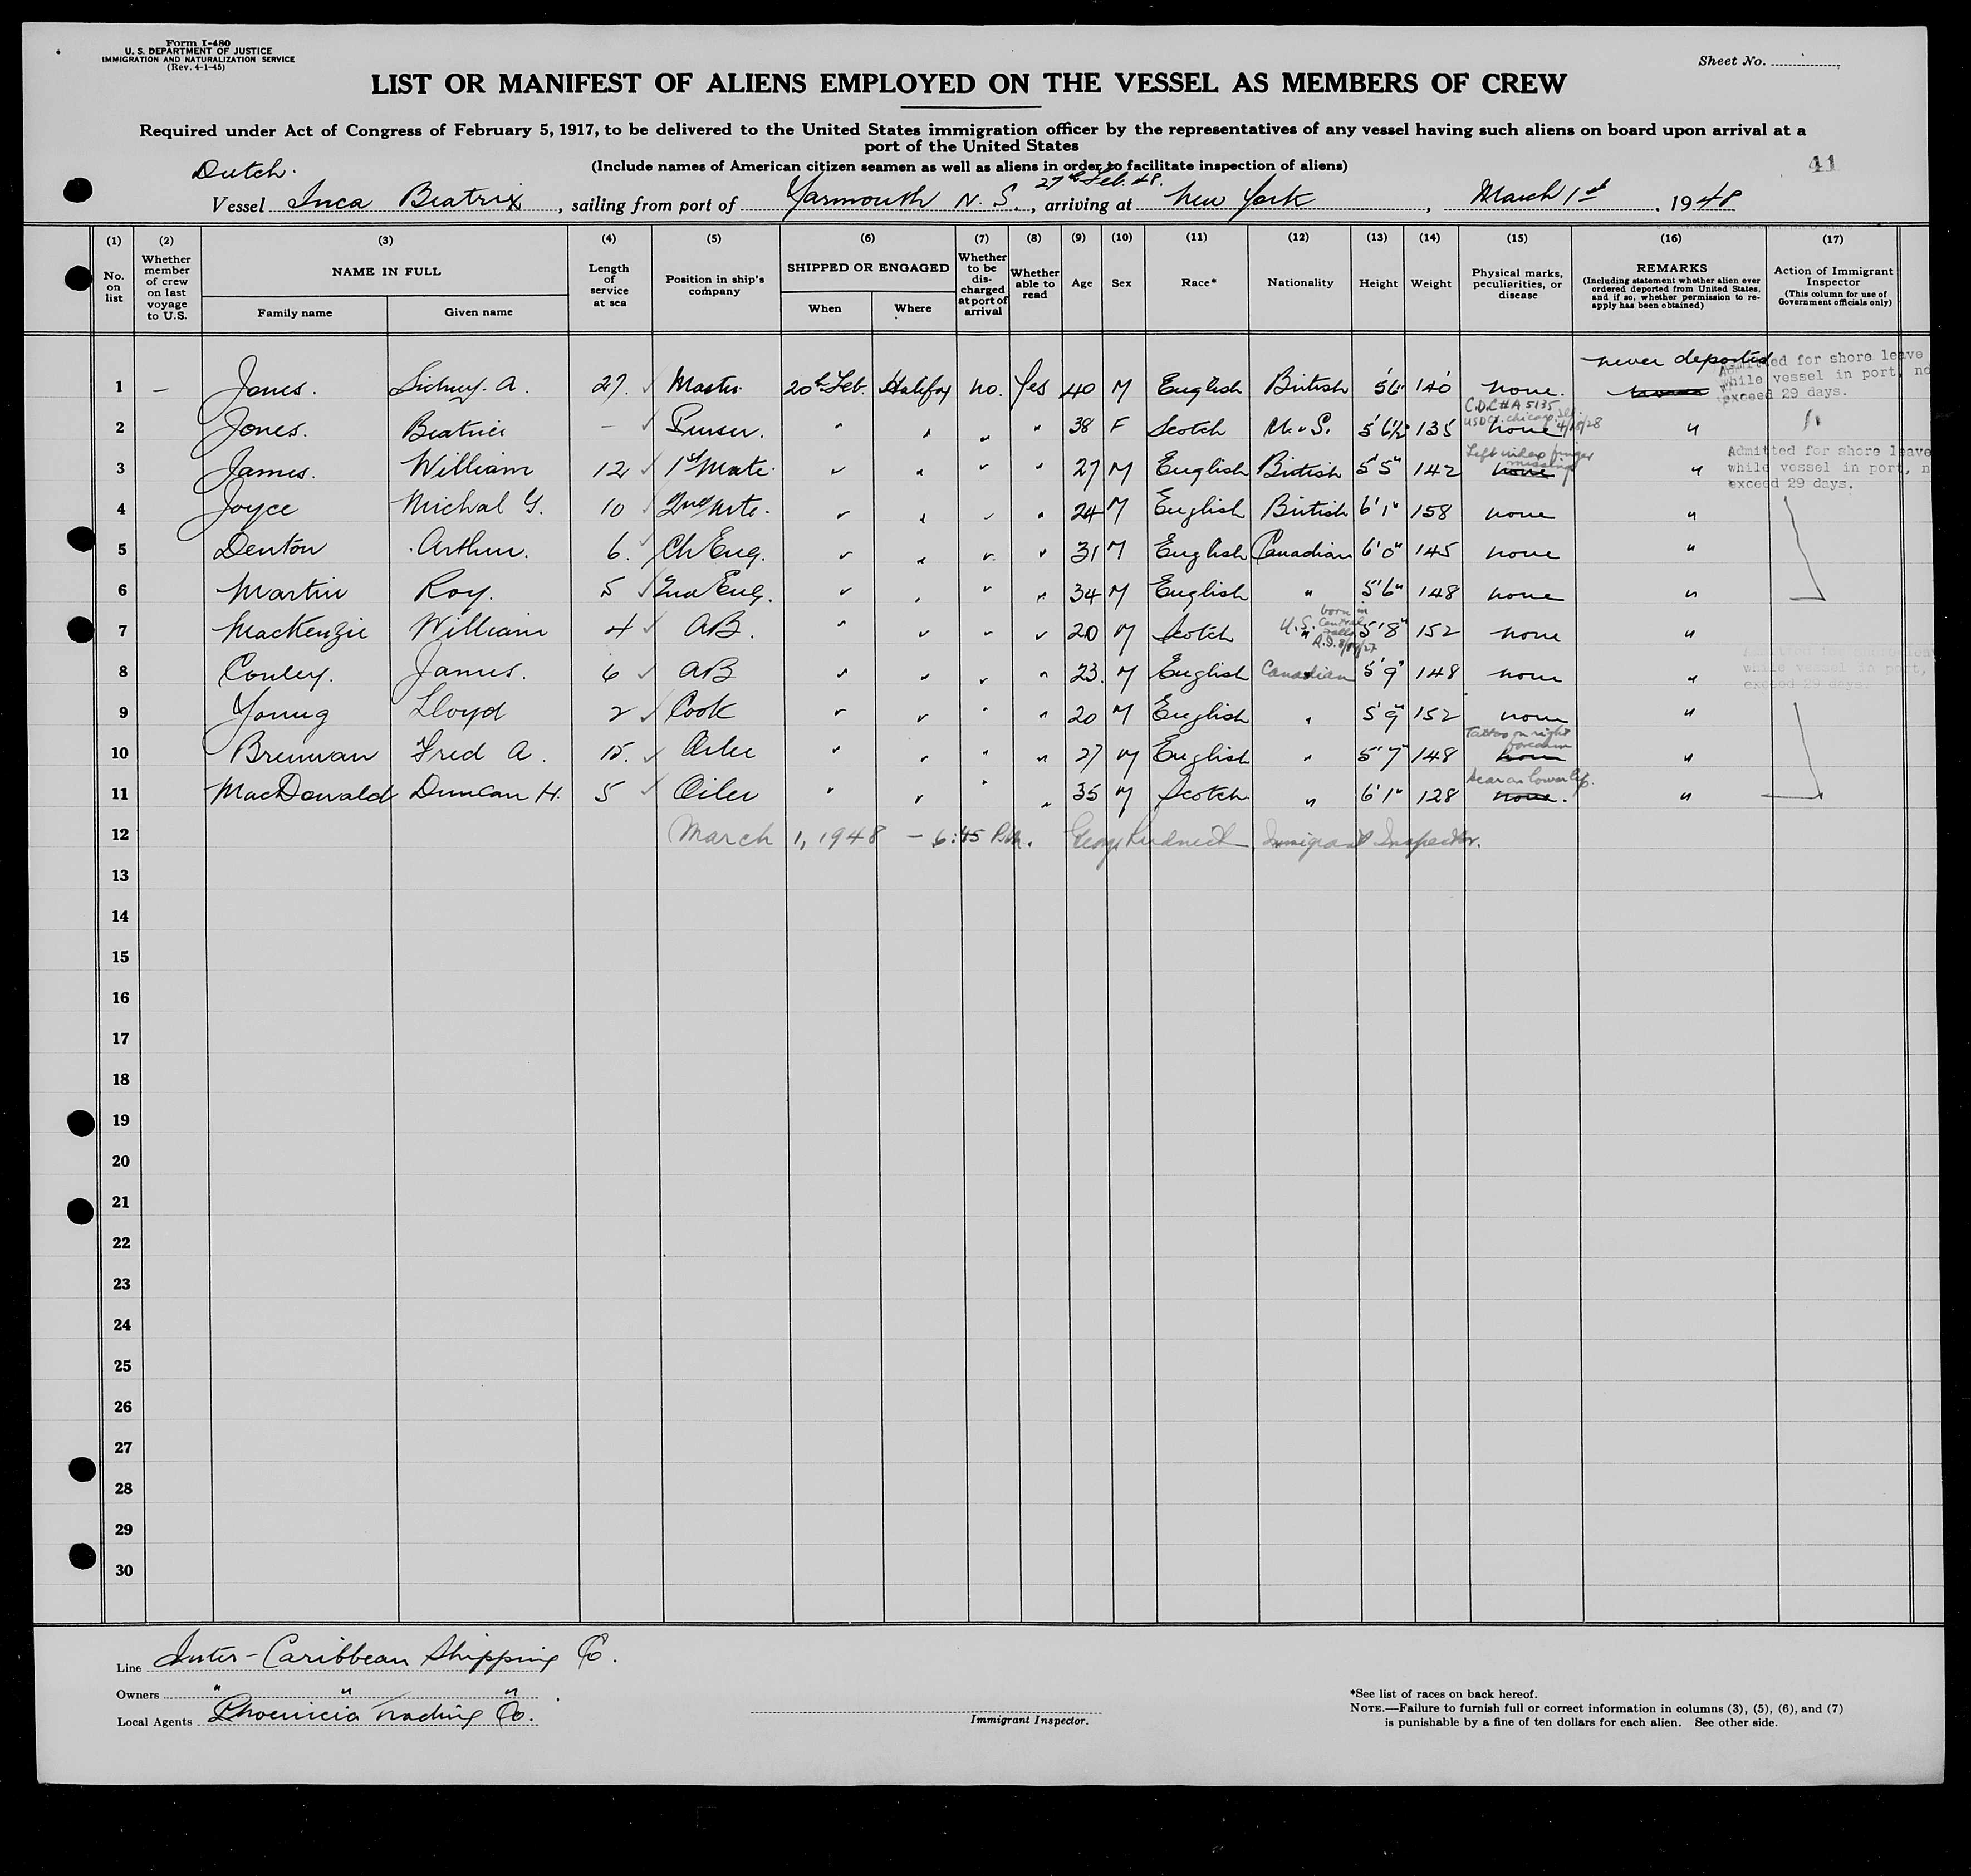 Form I-480
U. S. DEPARTMENT OF JUSTICE
IMMIGRATION AND NATURALIZATION SERVICE
(Rev. 4-1-45)
Sheet No.
LIST OR MANIFEST OF ALIENS EMPLOYED ON THE VESSEL AS MEMBERS OF CREW
Required under Act of Congress of February 5, 1917, to be delivered to the United States immigration officer by the representatives of any vessel having such aliens on board upon arrival at a
port of the United States
(Include names of American citizen seamen as well as aliens in order to facilitate inspection of aliens)
41
Dutch.
27th Feb. 48.
Vessel Inca Beatrix, sailing from port of Yarmouth N. S., arriving at New York, March 1st, 1948
(1) (2) (3) (4) (5) (6) (7) (8) (9) (10) (11) (12) (13) (14) (15) (16) (17)
No. on list
Whether member of crew on last voyage to U.S.
NAME IN FULL
Family name
Given name
Length of service at sea
Position in ship's company
SHIPPED OR ENGAGED
When
Where
Whether to be discharged at port of arrival
Whether able to read
Age
Sex
Race*
Nationality
Height
Weight
Physical marks, peculiarities, or disease
REMARKS
(Including statement whether alien ever ordered deported from United States, and if so, whether permission to re-apply has been obtained)
Action of Immigrant Inspector
(This column for use of Government officials only)
never deported
Admitted for shore leave
while vessel in port, no
exceed 29 days.
1 — Jones. Sidney. A. 27. ✓ Master 20th Feb. Halifax no. Yes 40 M English British 5'6" 140 none.
C.D.C # A 5135
2 Jones. Beatrice — ✓ Purser. " " " " 38 F Scotch U. S. 5'6½ 135 none "
Left index finger
missing
3 James. William 12 ✓ 1st Mate. " " " " 27 M English British 5'5" 142 none "
Admitted for shore leave
while vessel in port, n
exceed 29 days.
4 Joyce Michal G. 10 ✓ 2nd Mte. " " " " 24 M English British 6'1" 158 none "
5 Denton Arthur. 6. ✓ Ch Eng. " " " " 31 M English Canadian 6'0" 145 none "
6 Martin Roy. 5 ✓ 2nd Eng. " " " " 34 M English " 5'6" 148 none "
born in
Central
Falls
R.I. 8/19/27
7 MacKenzie William 4 ✓ AB. " " " " 20 M Scotch U.S. " 5'8" 152 none "
Admitted for shore leav
while vessel in port,
exceed 29 days.
8 Conley. James. 6 ✓ AB " " " " 23. M English Canadian 5'9" 148 none "
9 Young Lloyd 2 ✓ Cook " " " " 20 M English " 5'9" 152 none "
Tattoo on right
forearm
10 Brennan Fred A. 15. ✓ Oiler " " " " 27 M English " 5'7" 148 none "
Scar on lower lip.
11 MacDonald Duncan H. 5 ✓ Oiler " " " " 35 M Scotch " 6'1" 128 none. "
12 March 1, 1948 — 6:45 P.M. George Rudnick Immigrant Inspector.
13
14
15
16
17
18
19
20
21
22
23
24
25
26
27
28
29
30
Line Inter-Caribbean Shipping Co.
Owners " " "
Local Agents Phoenicia Trading Co.
Immigrant Inspector.
*See list of races on back hereof.
NOTE.—Failure to furnish full or correct information in columns (3), (5), (6), and (7)
is punishable by a fine of ten dollars for each alien. See other side.